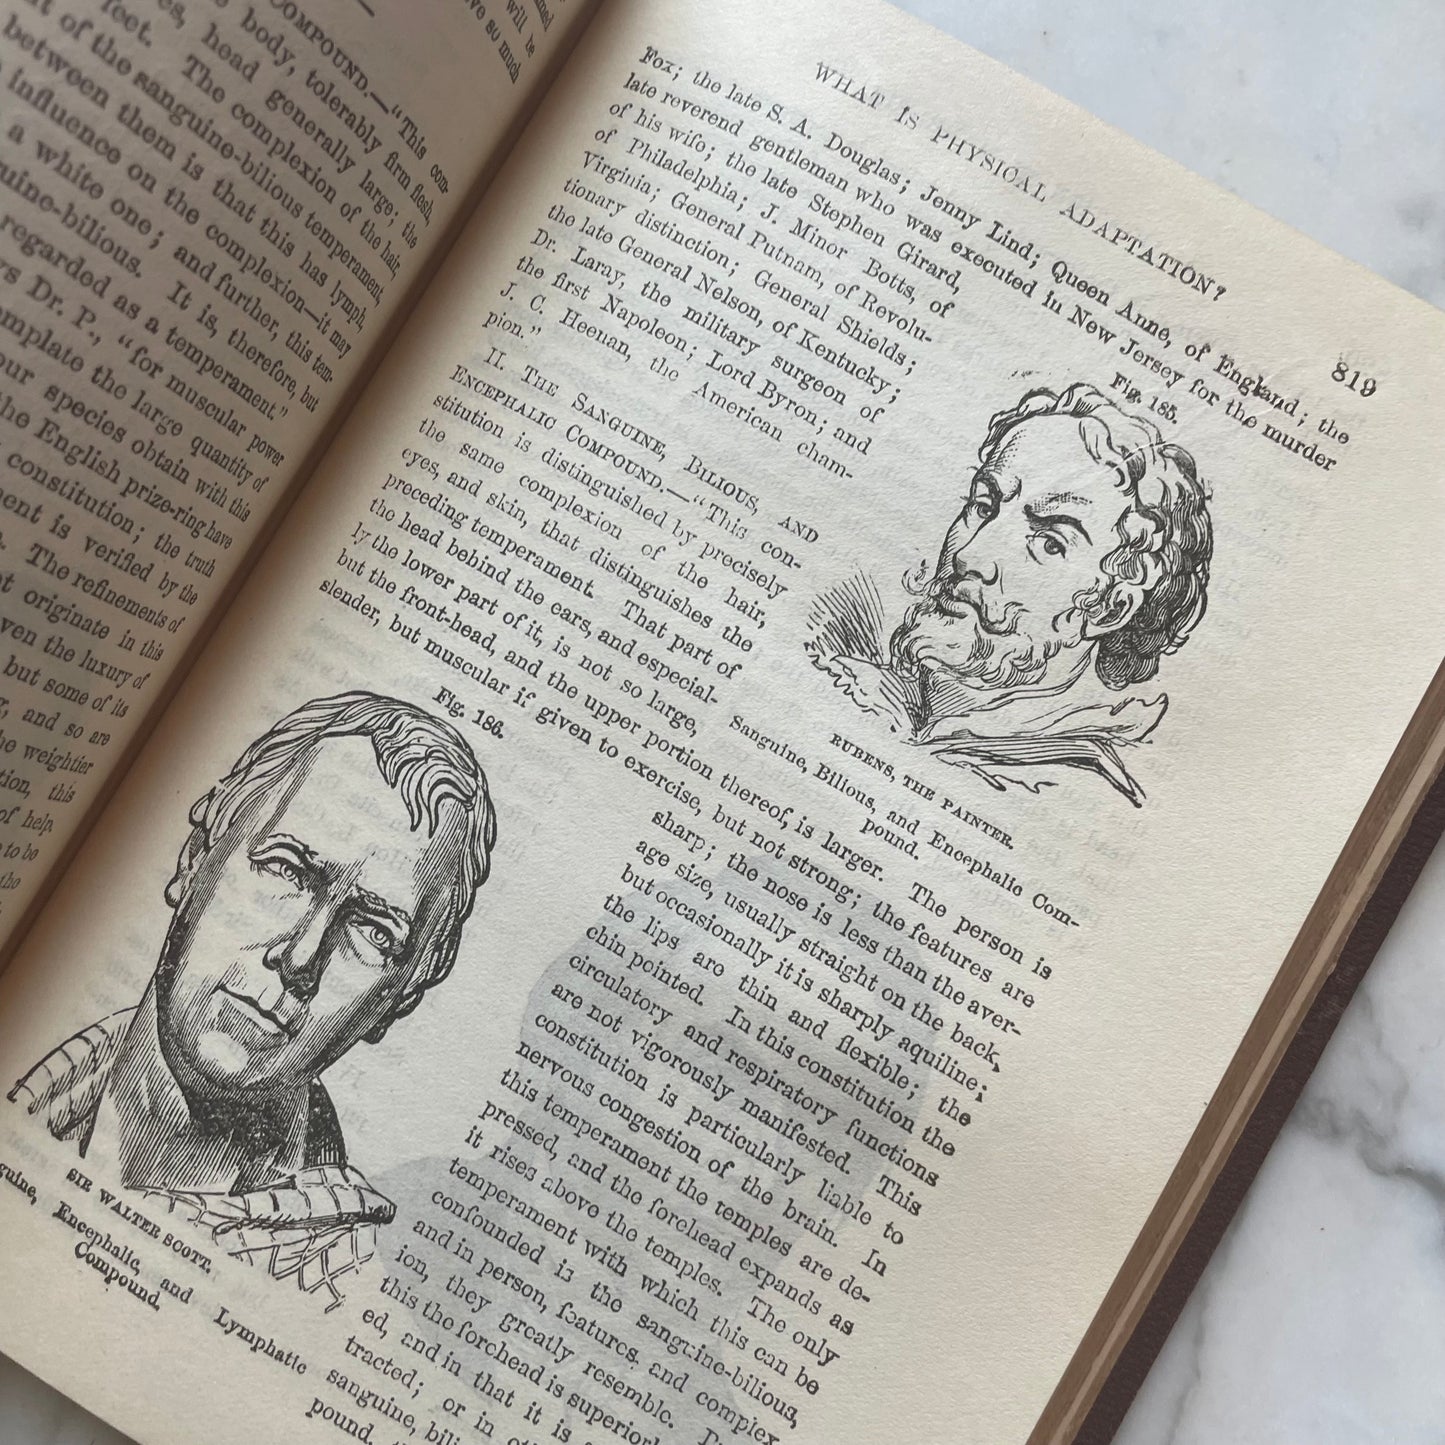 COMPOUND.—"This com-
body, tolerably firm flesh,
feet. The complexion of the hair,
head generally large; the
of the sanguine-bilious temperament,
between them is that this has lymph,
influence on the complexion—it may
a white one; and further, this tem-
bilious. It is, therefore, but
regarded as a temperament."
Dr. P., "for muscular power
the large quantity of
our species obtain with this
the English prize-ring have
constitution; the truth
is verified by the
The refinements of
originate in this
the luxury of
but some of its
and so are
weightier
this
of help.
to be
WHAT IS PHYSICAL ADAPTATION? 819
Fox; the late S. A. Douglas; Jenny Lind; Queen Anne, of England; the
late reverend gentleman who was executed in New Jersey for the murder
of his wife; the late Stephen Girard,
of Philadelphia; J. Minor Botts, of
Virginia; General Putnam, of Revolu-
tionary distinction; General Shields;
the late General Nelson, of Kentucky;
Dr. Laray, the military surgeon of
the first Napoleon; Lord Byron; and
J. C. Heenan, the American cham-
pion."
Fig. 185.
II. THE SANGUINE, BILIOUS, AND
ENCEPHALIC COMPOUND.—"This con-
stitution is distinguished by precisely
the same complexion of the hair,
eyes, and skin, that distinguishes the
preceding temperament. That part of
the head behind the ears, and especial-
ly the lower part of it, is not so large,
RUBENS, THE PAINTER.
Sanguine, Bilious, and Encephalic Com-
pound.
but the front-head, and the upper portion thereof, is larger. The person is
slender, but muscular if given to exercise, but not strong; the features are
Fig. 186.
sharp; the nose is less than the aver-
age size, usually straight on the back,
but occasionally it is sharply aquiline;
the lips are thin and flexible; the
chin pointed. In this constitution the
circulatory and respiratory functions
are not vigorously manifested. This
constitution is particularly liable to
nervous congestion of the brain. In
this temperament the temples are de-
pressed, and the forehead expands as
it rises above the temples. The only
temperament with which this can be
confounded is the sanguine-bilious,
and in person, features, and complex-
ion, they greatly resemble.
this the forehead is
ed, and in that it is
tracted; or in
sanguine,
pound,
SIR WALTER SCOTT.
Encephalic, and Lymphatic
Compound.